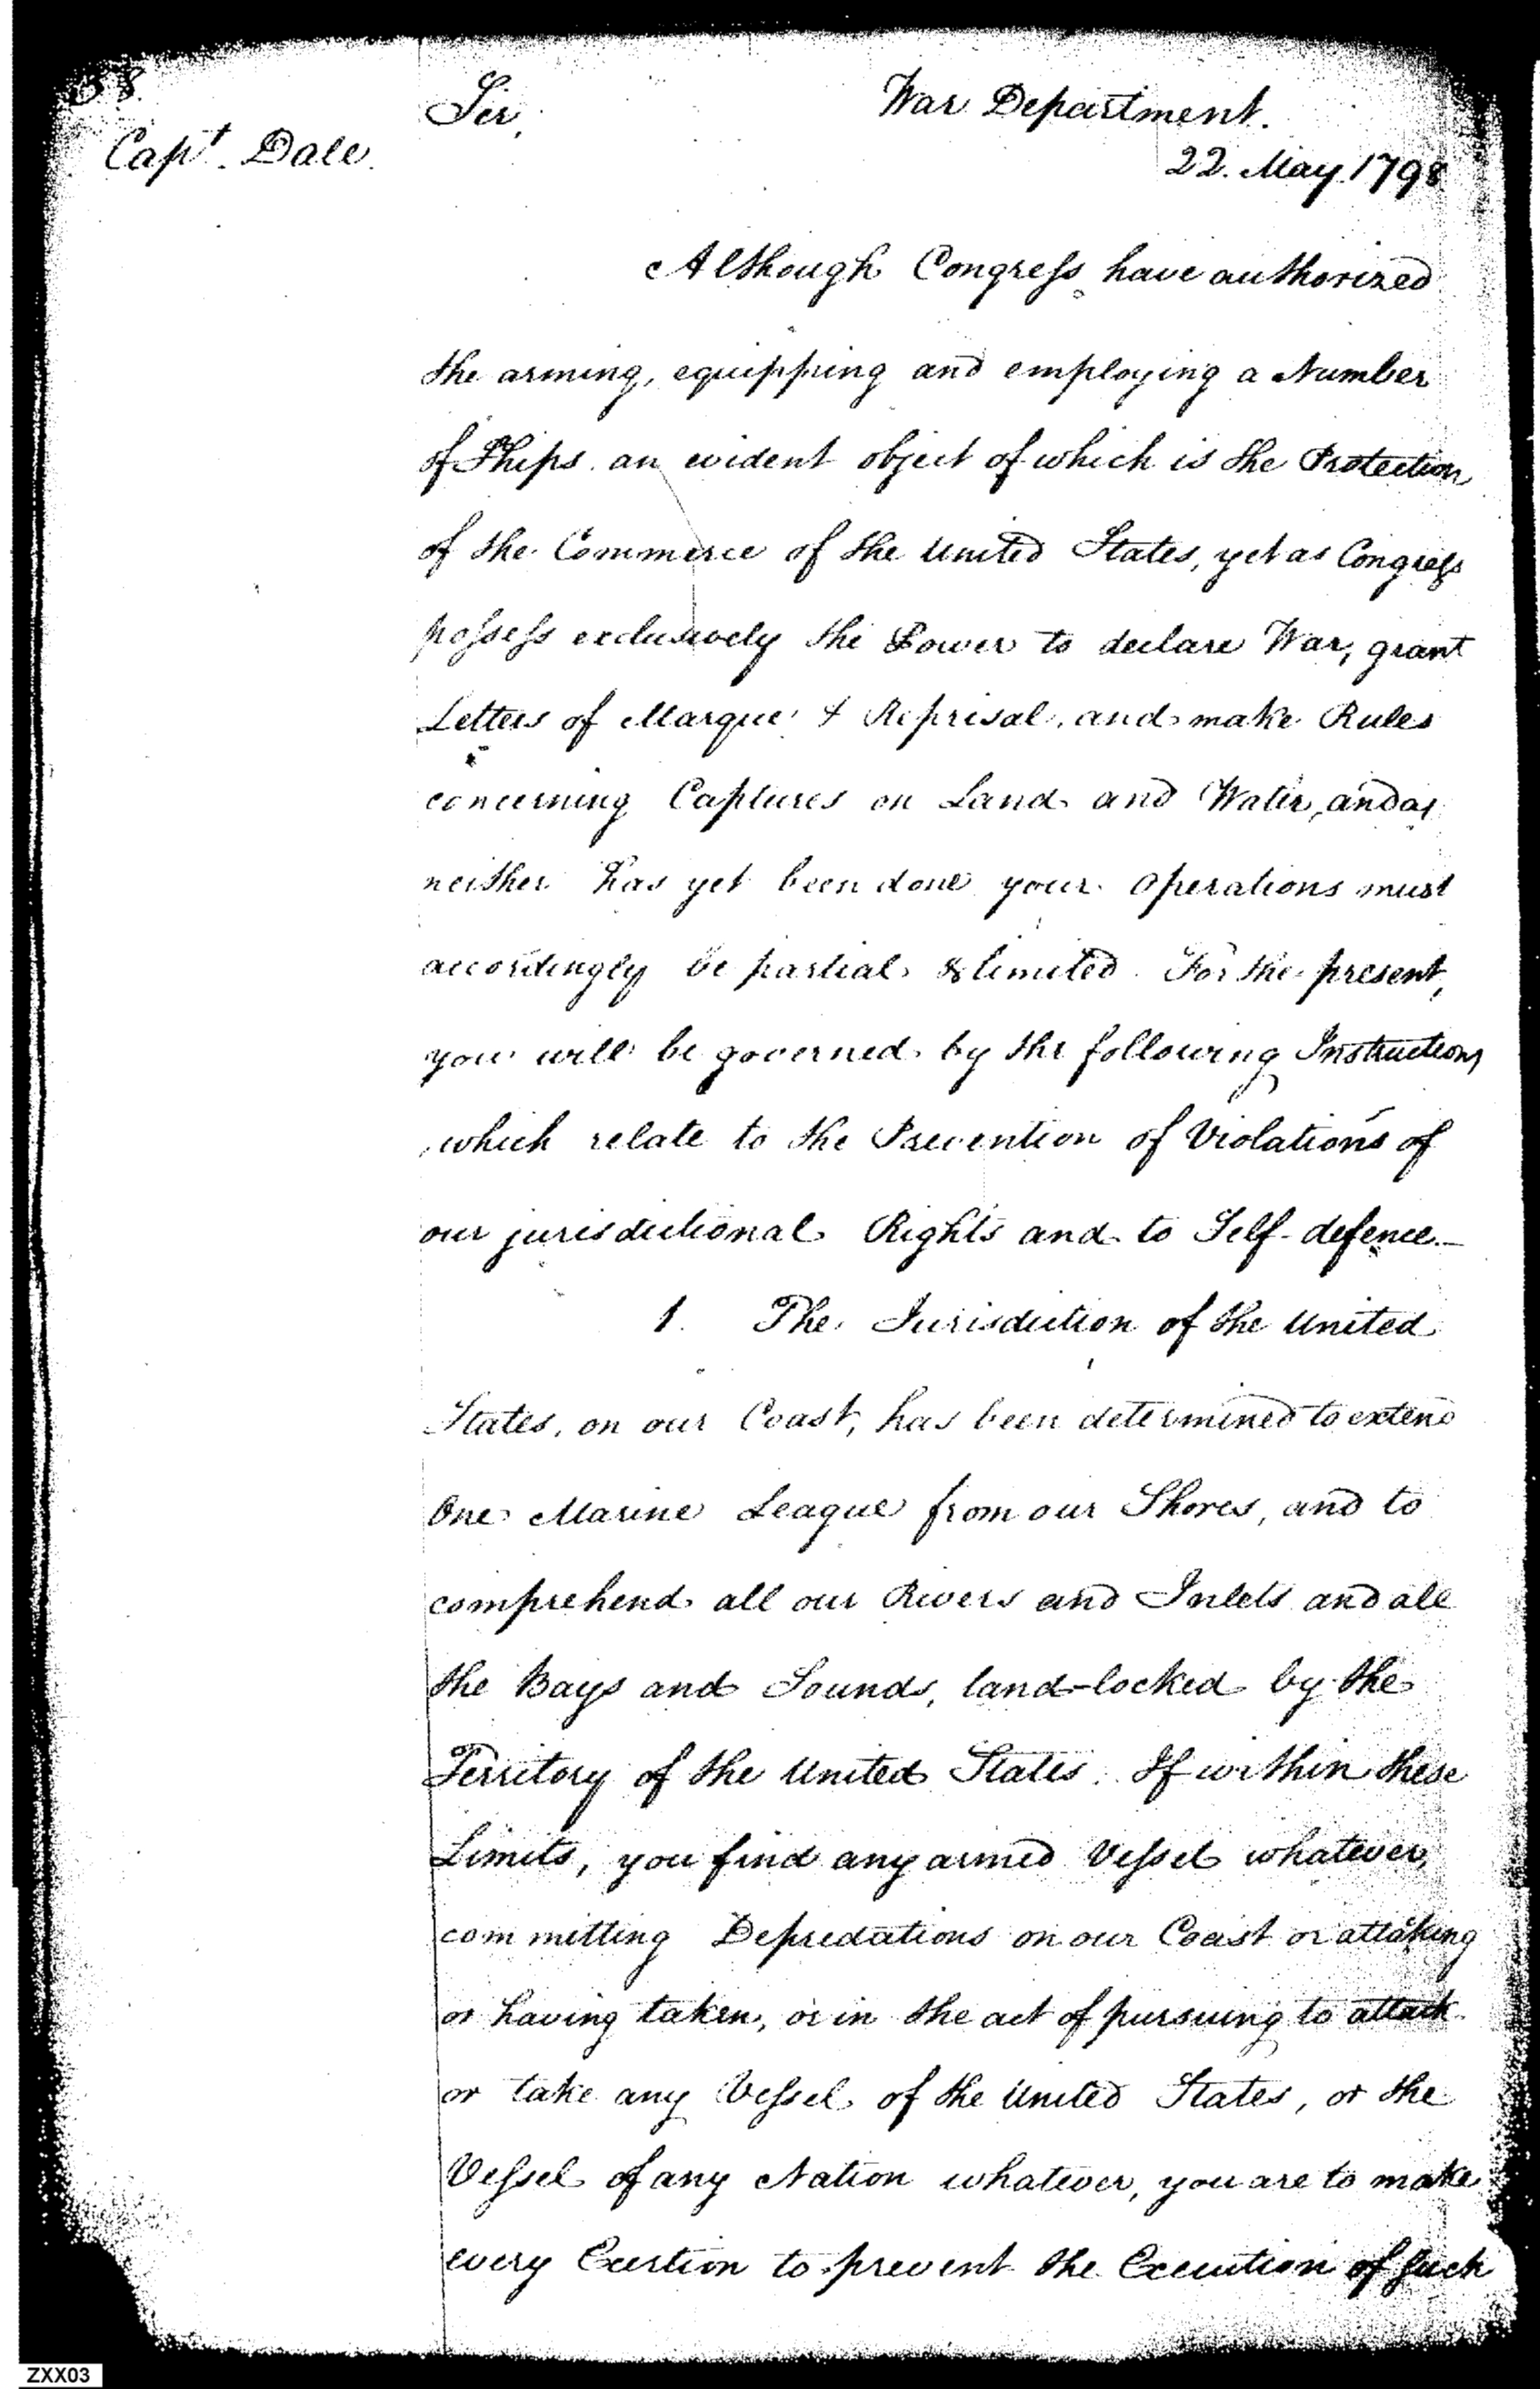 38
Sir, War Department.
Capt. Dale. 22. May 1798
Although Congress have authorized
the arming, equipping and employing a Number
of Ships an evident object of which is the Protection
of the Commerce of the United States, yet as Congress
possess exclusively the Power to declare War, grant
Letters of Marque & Reprisal, and make Rules
concerning Captures on Land and Water, and as
neither has yet been done your operations must
accordingly be partial & limited. For the present,
you will be governed by the following Instructions
which relate to the Prevention of Violations of
our jurisdictional Rights and to Self-defence.—
1. The Jurisdiction of the United
States, on our Coast, has been determined to extend
One Marine League from our Shores, and to
comprehend all our Rivers and Inlets and all
the Bays and Sounds, land-locked by the
Territory of the United States. If within these
Limits, you find any armed Vessel whatever,
committing Depredations on our Coast or attaking
or having taken, or in the act of pursuing to attack
or take any Vessel of the United States, or the
Vessel of any Nation whatever, you are to make
every Exertion to prevent the Execution of such
ZXX03